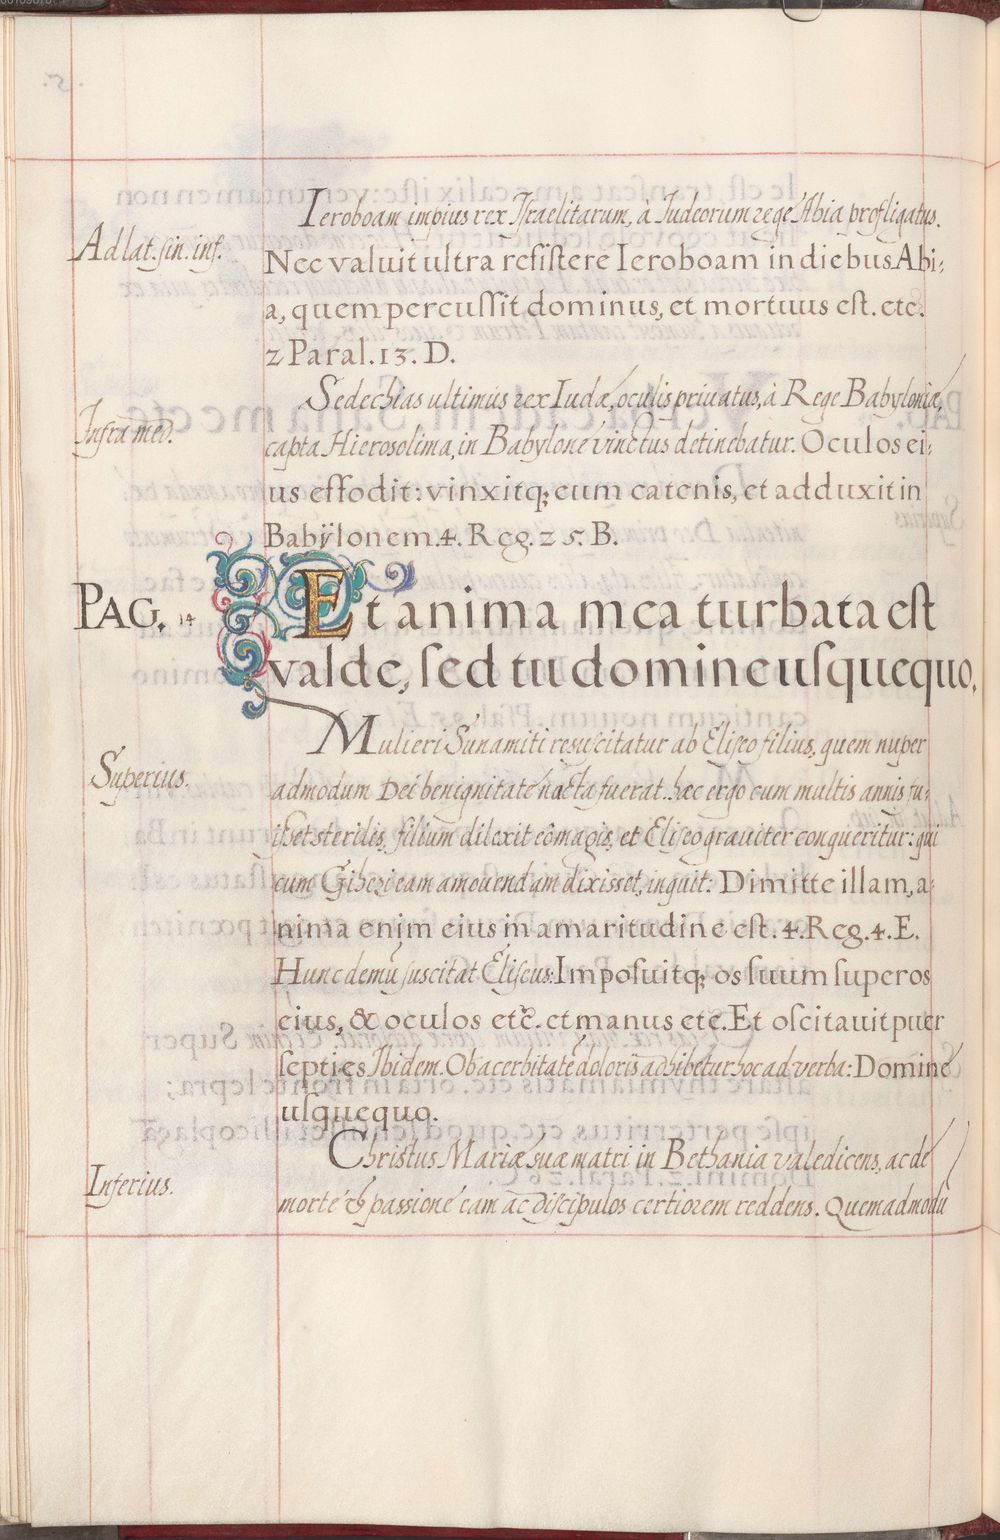 Ieroboam impius rex Israelitarum, à Iudeorum rege Abia profligatus.
Ad lat. sin. inf.
Nec valuit ultra resistere Ieroboam in diebus Abi:
a, quem percussit dominus, et mortuus est. etc.
2 Paral. 13. D.
Sedechias ultimus rex Iudæ, oculis priuatus, à Rege Babyloniæ,
Infra med.
capta Hierosolima, in Babylone vinctus detinebatur. Oculos ei:
us effodit: vinxitq; eum catenis, et adduxit in
Babÿlonem. 4. Reg. 25. B.
PAG. 14
Et anima mea turbata est
valde, sed tu domine usquequo.
Mulieri Sunamiti resuscitatur ab Eliseo filius, quem nuper
Superius.
admodum Dei benignitate nacta fuerat. hæc ergo cum multis annis fu:
isset sterilis, filium dilexit eò magis, et Eliseo grauiter conqueritur: qui
cum Gihezi eam amouendam dixisset, inquit: Dimitte illam, a:
nima enim eius in amaritudine est. 4. Reg. 4. E.
Hunc demũ suscitat Eliseus: Imposuitq; os suum super os
eius, & oculos etc. et manus etc. Et oscitauit puer
septies Ibidem. Ob acerbitatē doloris adhibetur hoc ad verba: Domine
usquequo.
Christus Mariæ suæ matri in Bethania valedicens, ac de
Inferius.
morte & passione eam ac discipulos certiorem reddens. Quemadmodũ